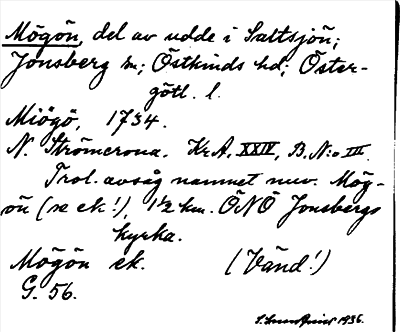 Mögön, del av udde i Saltsjön;
Jonsberg sn; Östkinds hd; Öster-
götl. l.
Miögö, 1734.
N. Strömcrona. Kr.A. XXIV, B. N:o III.
Trol. avsåg namnet nuv. Mög-
ön (se ek!), 1½ km. ÖNÖ Jonsbergs
kyrka.
Mögön ek. (Vänd!)
G. 56.
1936.